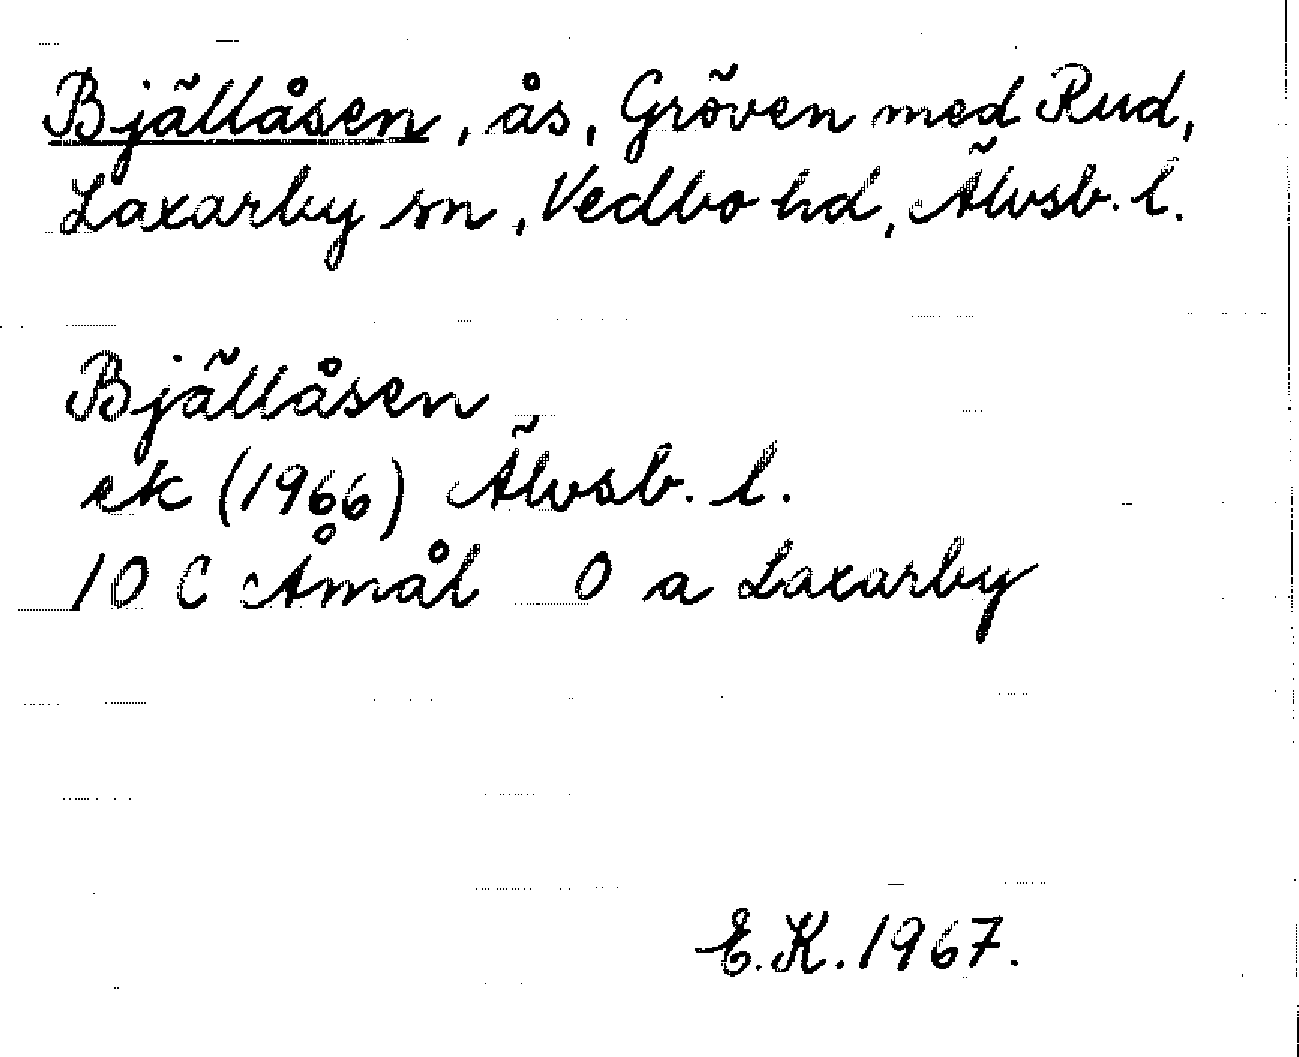 Bjällåsen, ås, Gröven med Rud,
Laxarby sn, Vedbo hd, Älvsb. l.
Bjällåsen
ek (1966) Älvsb. l.
10 C Åmål 0 a Laxarby
E.K. 1967.